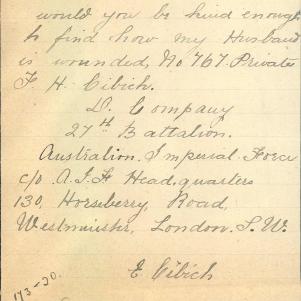 would you be kind enough
to find how my Husband
is wounded, No 767. Private
F. H. Cibich.
D. Company
27th Battalion.
Australian. Imperial Force
c/o A.I.F Head, quarters
130, Horseberry, Road,
Westminster, London. S. W.
E. Cibich
173-20.